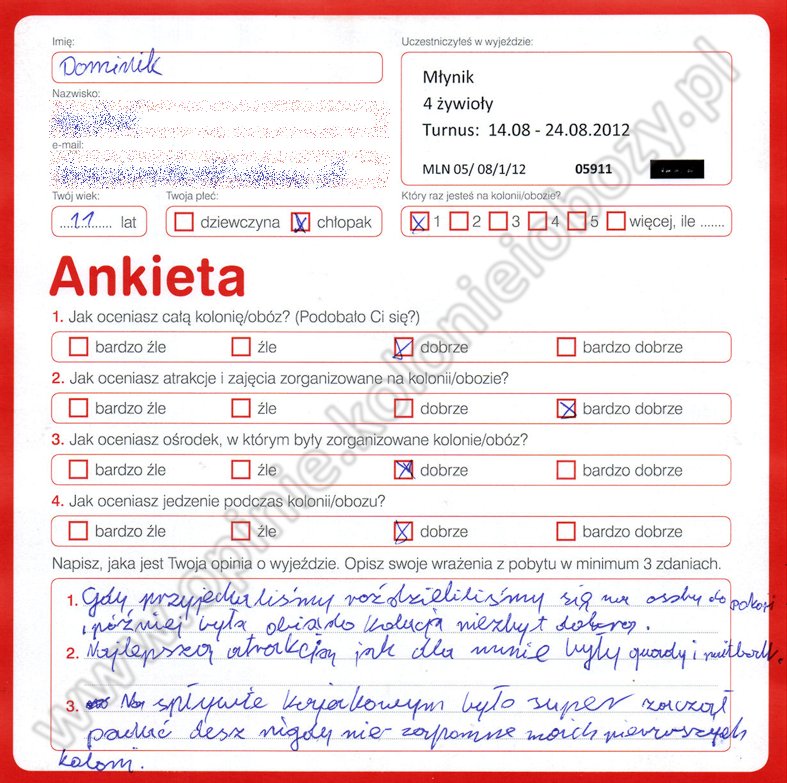 Imię:
Dominik
Uczestniczyłeś w wyjeździe:
Młynik
4 żywioły
Turnus: 14.08 - 24.08.2012
MLN 05/ 08/1/12 05911
Nazwisko:
e-mail:
Twój wiek:
11 lat
Twoja płeć:
dziewczyna chłopak
Który raz jesteś na kolonii/obozie?
1 2 3 4 5 więcej, ile .......
Ankieta
1. Jak oceniasz całą kolonię/obóz? (Podobało Ci się?)
bardzo źle źle dobrze bardzo dobrze
2. Jak oceniasz atrakcje i zajęcia zorganizowane na kolonii/obozie?
bardzo źle źle dobrze bardzo dobrze
3. Jak oceniasz ośrodek, w którym były zorganizowane kolonie/obóz?
bardzo źle źle dobrze bardzo dobrze
4. Jak oceniasz jedzenie podczas kolonii/obozu?
bardzo źle źle dobrze bardzo dobrze
Napisz, jaka jest Twoja opinia o wyjeździe. Opisz swoje wrażenia z pobytu w minimum 3 zdaniach.
1. Gdy przyjechaliśmy rozdzieliliśmy się na osoby do pokoji
i później była kolacja niezbyt dobra.
2. Najlepszą atrakcją jak dla mnie były quady i
3. Na spływie kajakowym było super zaczął
padać desz nigdy nie zapomne moich pierwszych
koloni.
www.opinie.kolonieiobozy.pl